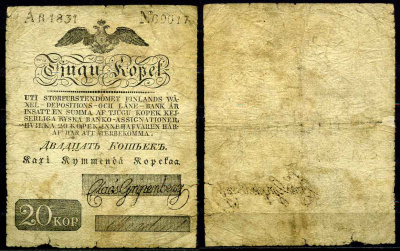 År 1831
No
Tjugu Kopek
UTI STORFURSTENDÖMET FINLANDS WÄ-
XEL- DEPOSITIONS- OCH LÅNE-BANK ÄR
INSATT EN SUMMA AF TJUGU KOPEK KEJ-
SERLIGA RYSKA BANKO-ASSIGNATIONER,
HVILKA 20 KOPEK INNEHAFVAREN HÄR-
AF HAR ATT ÅTERBEKOMMA.
ДВАДЦАТЬ КОПѢЕКЪ.
Kaxi Kymmendä Kopekaa.
Claës Gripenberg
20 KOP